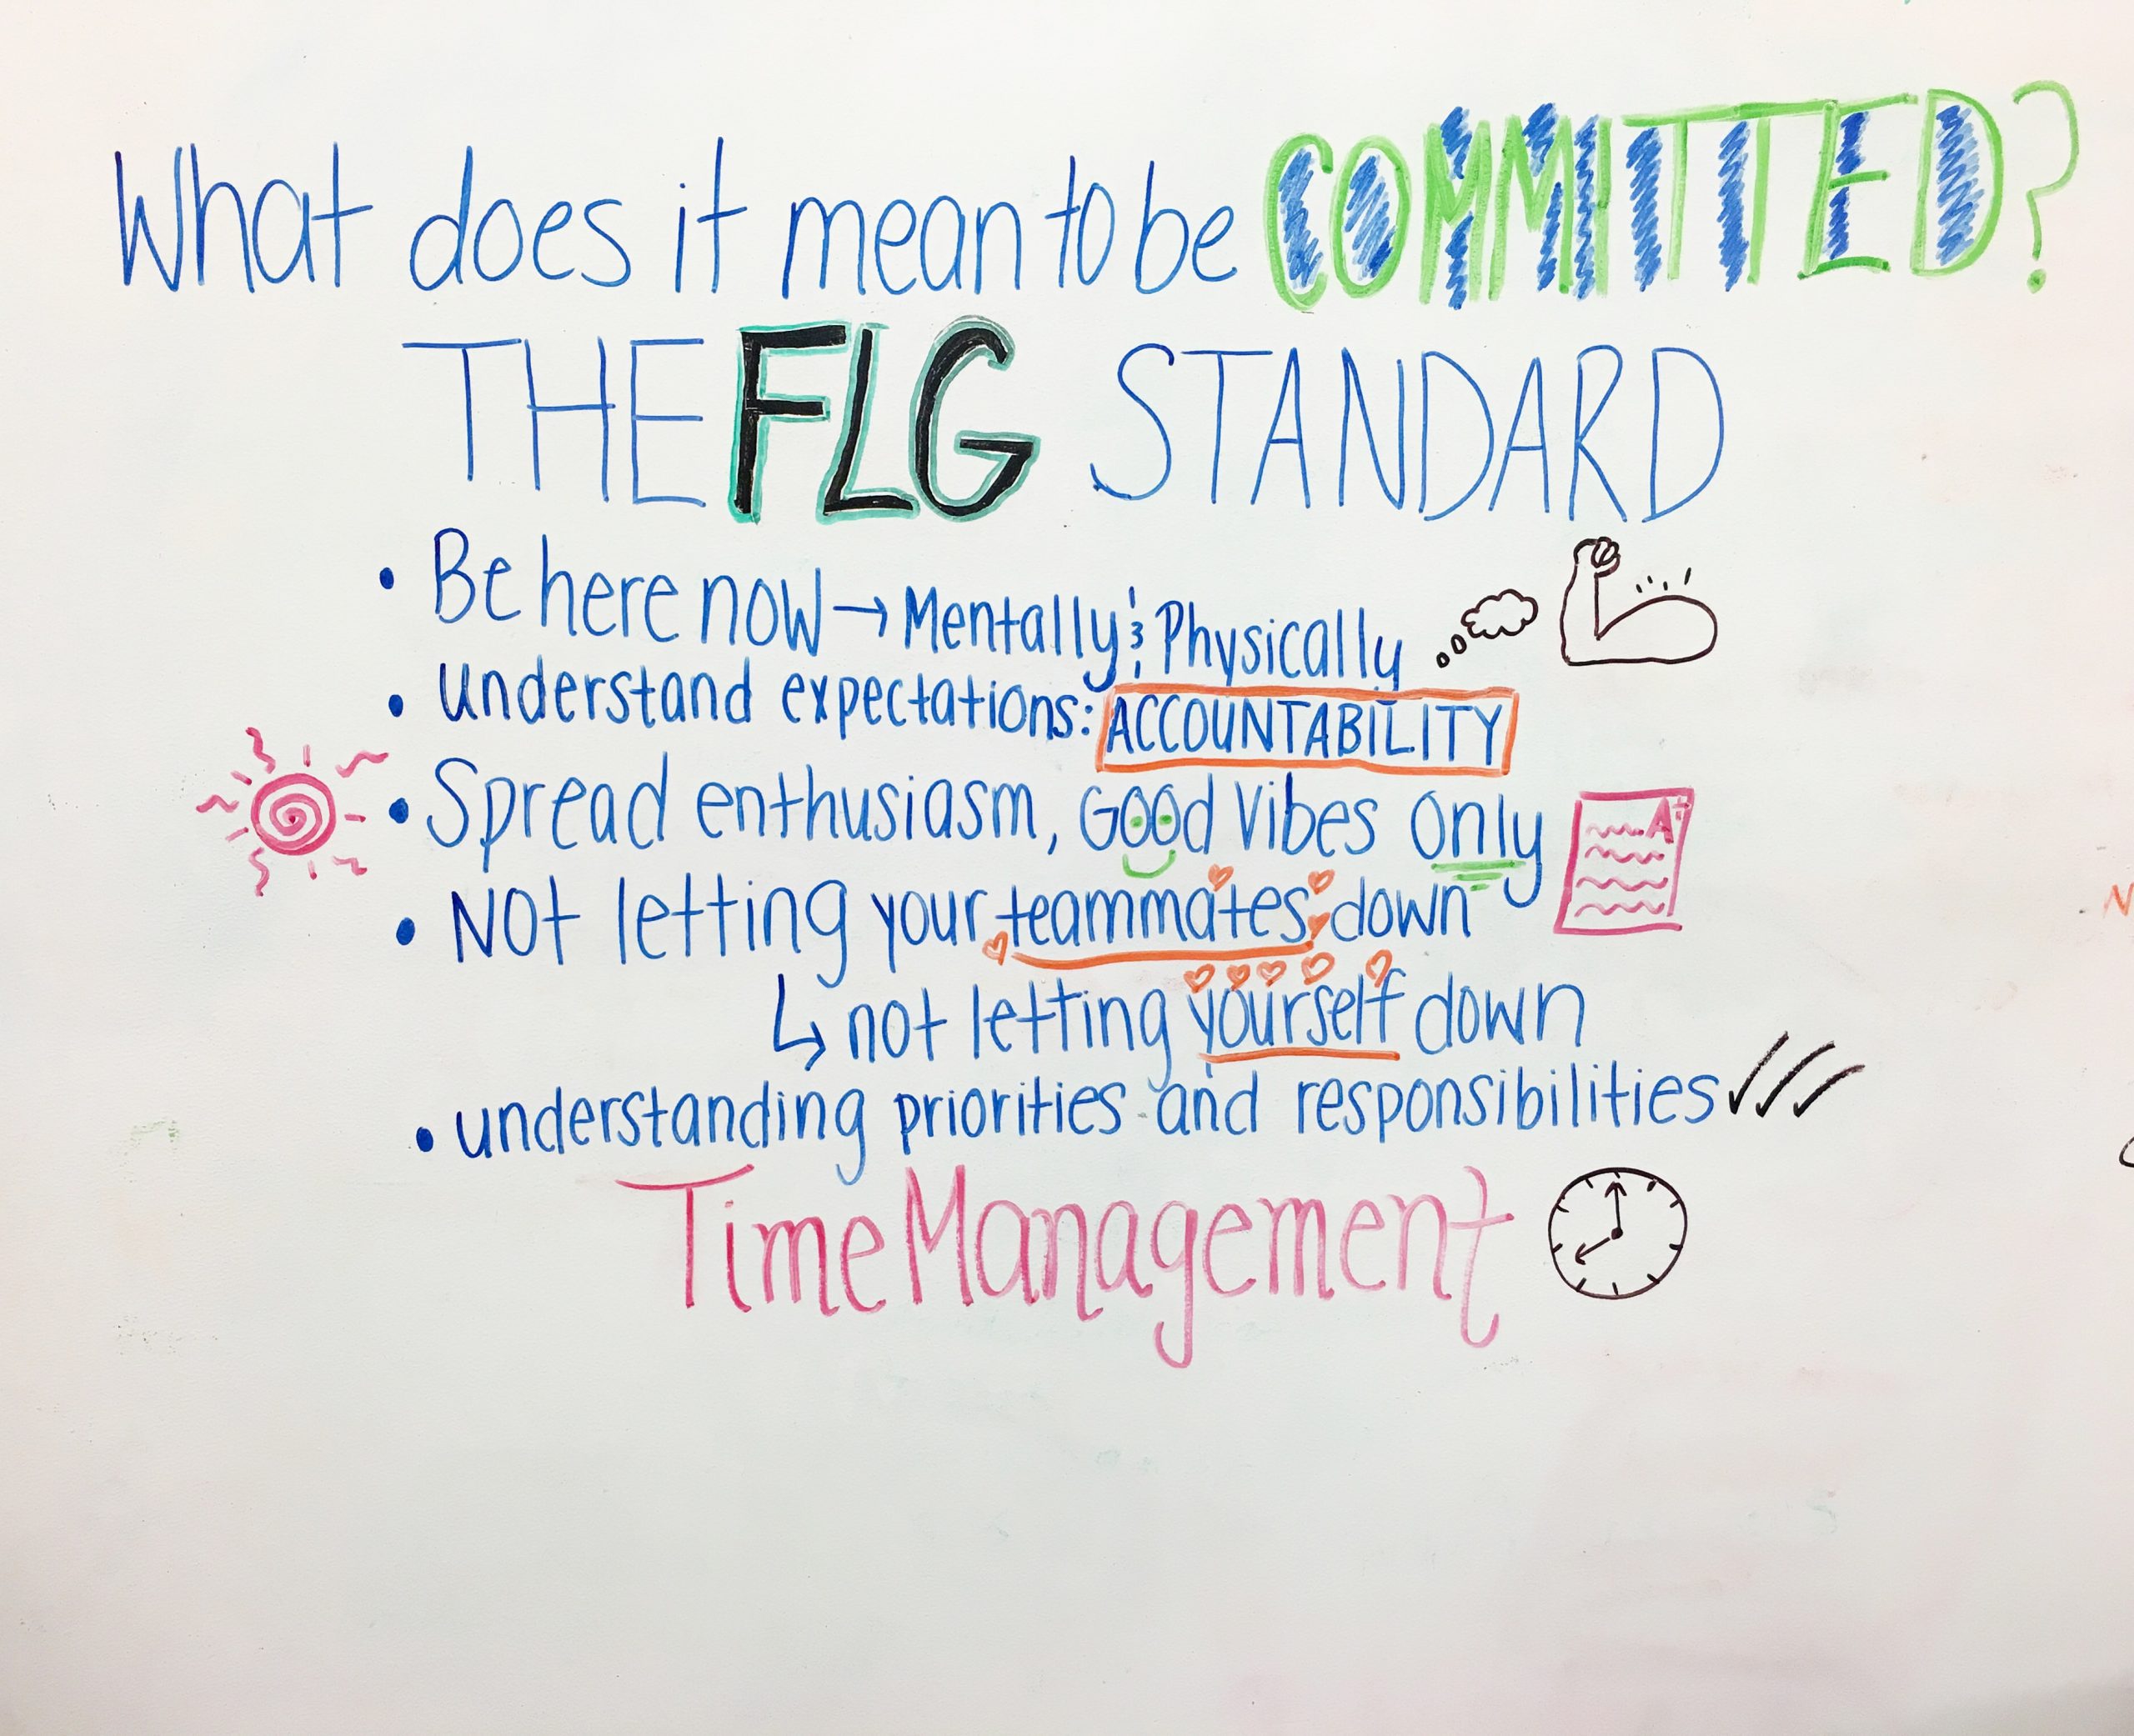 What does it mean to be COMMITTED?
THE FLG STANDARD
• Be here now → Mentally & Physically
• understand expectations: ACCOUNTABILITY
• Spread enthusiasm, Good Vibes only
A+
• NOt letting your teammates down
↳ not letting yourself down
• understanding priorities and responsibilities ✓✓✓
Time Management